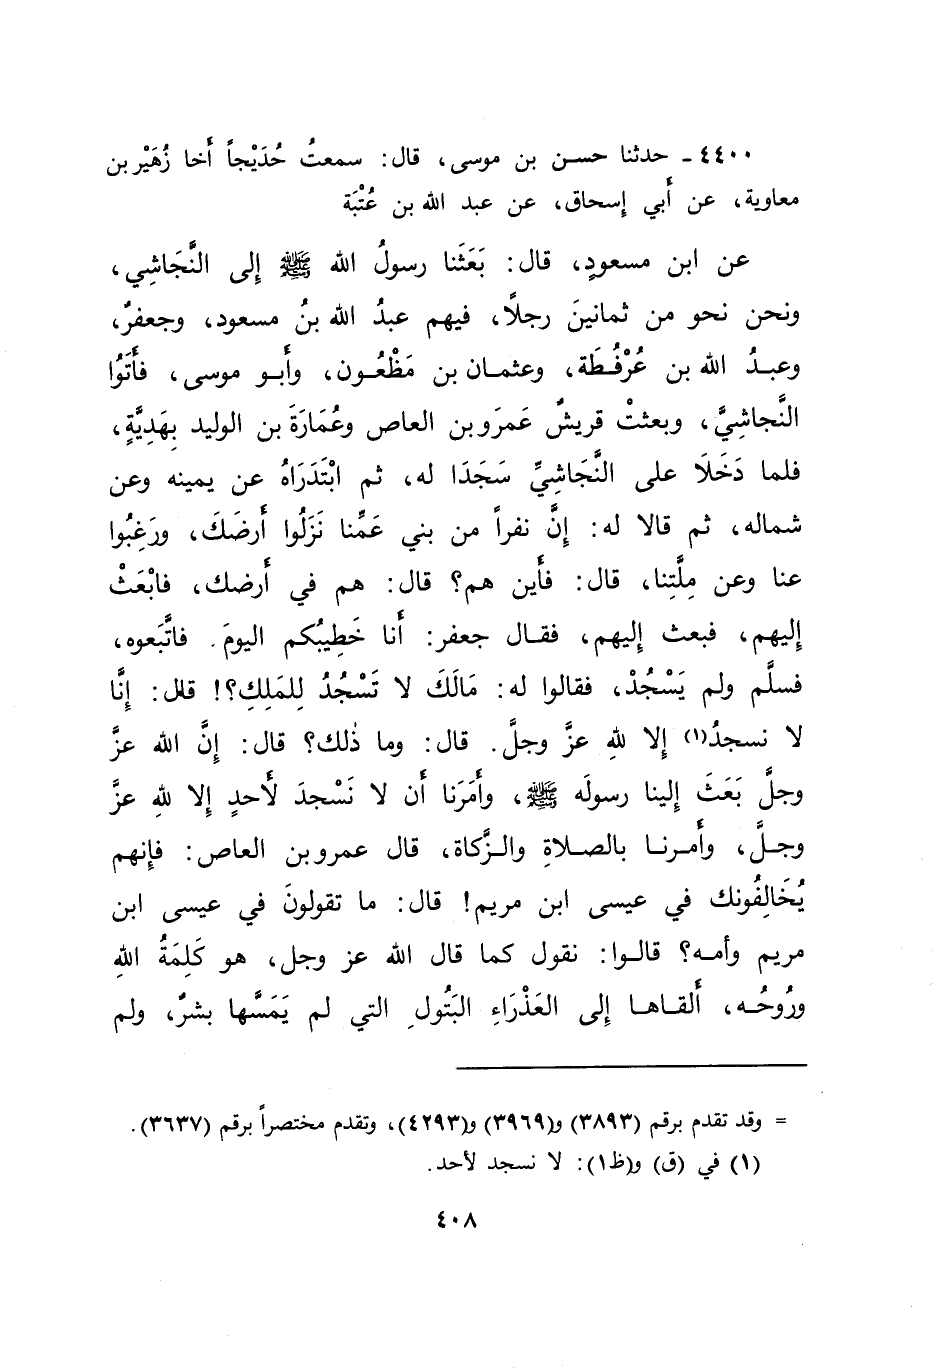 ٤٤٠٠ - حدثنا حسن بن موسى، قال: سمعتُ حُدَيْجاً أَخا زُهَيْر بن
معاوية، عن أَبي إسحاق، عن عبد الله بن عُتْبَة
عن ابن مسعودٍ، قال: بَعَثَنا رسولُ الله ﷺ إِلى النَّجَاشِي،
ونحن نحو من ثمانينَ رجلًا، فيهم عبدُ الله بنُ مسعود، وجعفرٌ،
وعبـدُ الله بن عُرْفُـطَة، وعثمـان بن مَظْعُـون، وأَبـو موسى، فأَتَوُا
النَّجاشِيَّ، وبعثتْ قريشٌ عَمرَو بن العاص وعُمَارَةَ بن الوليد بِهَدِيَّةٍ،
فلما دَخَلَا على النَّجَاشِيِّ سَجَدَا له، ثم ابْتَدَرَاهُ عن يمينه وعن
شماله، ثم قالا له: إِنَّ نفراً من بني عَمِّنا نَزَلُوا أَرضَكَ، ورَغِبُوا
عنا وعن مِلَّتِنا، قال: فأَين هم؟ قال: هم في أَرضك، فابْعَثْ
إِليهم، فبعث إِليهم، فقـال جعفر: أَنا خَطِيبُكم اليومَ. فاتَّبَعوه،
فسلَّم ولم يَسْجُدْ، فقالوا له: مَالَكَ لا تَسْجُدُ لِلمَلِكِ؟! قال: إِنَّا
لا نسجدُ(١) إِلا للهِ عزَّ وجلَّ. قال: وما ذٰلك؟ قال: إِنَّ الله عزَّ
وجلَّ بَعَثَ إِلينا رسولَه ﷺ، وأَمَرَنا أَن لا نَسْجدَ لأَحدٍ إِلا للهِ عزَّ
وجـلَّ، وأَمـرنـا بالصـلاةِ والـزَّكاة، قال عمرو بن العاص: فإنهم
يُخَالِفُونك في عيسى ابن مريم! قال: ما تقولونَ في عيسى ابن
مريم وأمـه؟ قالـوا: نقول كما قال الله عز وجل، هو كَلِمَةُ اللهِ
ورُوحُـه، أَلقـاهـا إِلى العَذْرَاءِ البَتُولِ التي لم يَمَسَّها بشرٌ، ولم
= وقد تقدم برقم (٣٨٩٣) و(٣٩٦٩) و(٤٢٩٣)، وتقدم مختصراً برقم (٣٦٣٧).
(١) في (ق) و(ظ١): لا نسجد لأحد.
٤٠٨